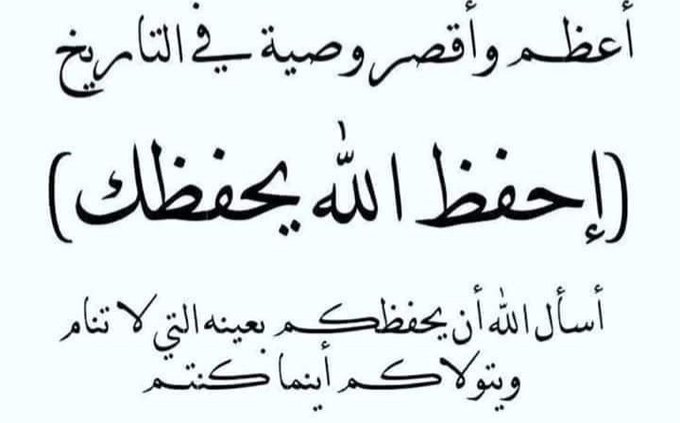 أعظم وأقصر وصية في التاريخ
(إحفظ الله يحفظك)
أسأل الله أن يحفظكم بعينه التي لا تنام
ويتولاكم أينما كنتم